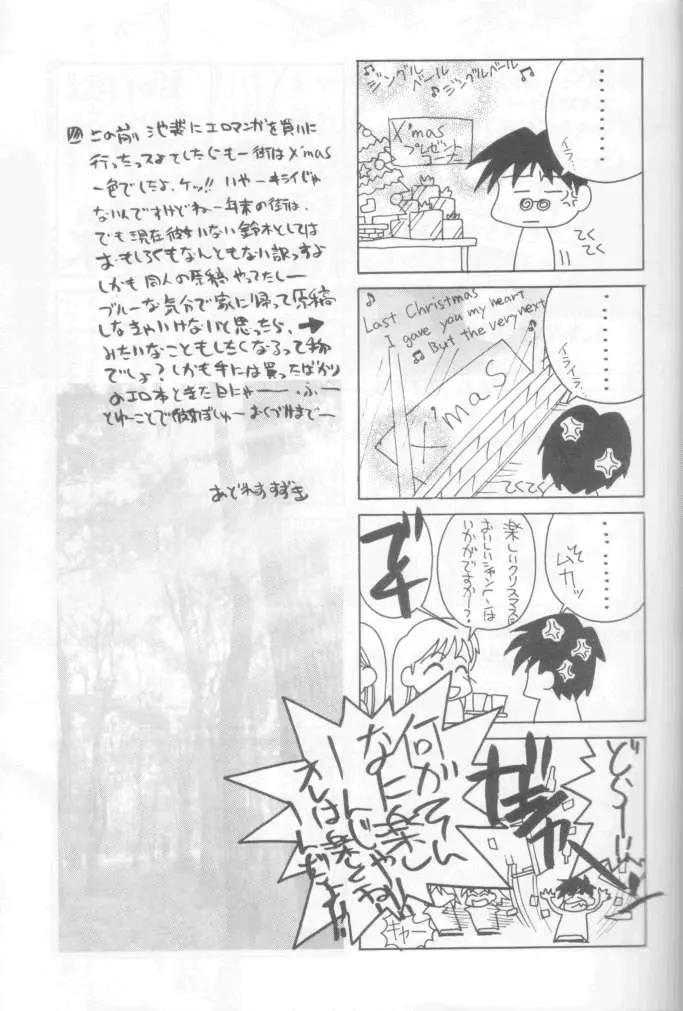 ♪ジングルベール ジングルベール♪
X'mas
プレゼント
コーナー
・・・・・・
イラ…
てく
てく
♪
Last Christmas
I gave you my heart
♪But the very next
X'mas
・・・・・・
イライラ…
てくてく
・・・・・・
ムカッ
楽しいクリスマスに
おいしいシャンペンは
いかがですかー？
デキ
ど〜〜ん
キャー
何がそんな
に楽しーんじゃ
オレは楽しくねー
んだよ!!
この前、池袋にエロマンガを買いに
行ったっスよでしたしぐも一街はX'mas
一色でしたよ、ケッ!! いやーキライじゃ
ないんですけどねー年末の街は、
でも現在彼女いない鈴木としては
おもしろくもなんともない訳っすよ
しかも同人の原稿やってたしー
ブルーな気分で家に帰って原稿
しなきゃいけないと思ったら、➔
みたいなこともしたくなるって物
でしょ？しかも手には買ったばかり
のエロ本ときた日にゃー ふー
とゆーことで
あどれすすずき